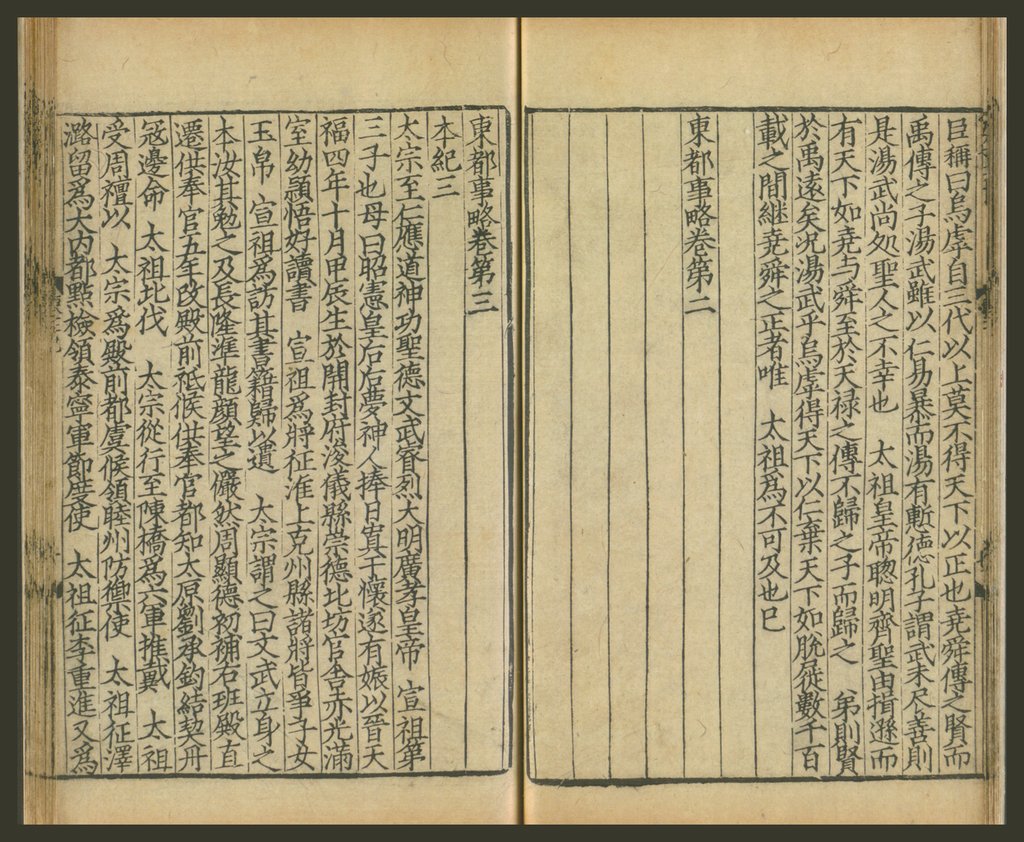 臣稱曰烏虖自三代以上莫不得天下以正也堯舜傳之賢而
禹傳之子湯武雖以仁易暴而湯有慙徳孔子謂武未尽善則
是湯武尚処聖人之不幸也　太祖皇帝聦明齊聖由揖遜而
有天下如堯与舜至於天禄之傳不歸之子而歸之　弟則賢
於禹遠矣况湯武乎烏虖得天下以仁棄天下如脱屣數千百
載之間継堯舜之正者唯　太祖爲不可及也已
東都事略卷第二
東都事略卷第三
本紀三
太宗至仁應道神功聖德文武睿烈大明廣孝皇帝　宣祖第
三子也母曰昭憲皇后后夢神人捧日寘于懷遂有娠以晉天
福四年十月甲辰生於開封府浚儀縣崇德北坊官舍赤光滿
室幼頴悟好讀書　宣祖爲將征淮上克州縣諸將皆爭子女
玉帛　宣祖爲訪其書籍歸以遺　太宗謂之曰文武立身之
本汝其勉之及長隆準龍顔望之儼然周顯德初補右班殿直
遷供奉官五年改殿前祗候供奉官都知太原劉承鈞結契丹
冦邊命　太祖北伐　太宗從行至陳橋爲六軍推戴　太祖
受周禪以　太宗爲殿前都虞候領睦州防禦使　太祖征澤
潞留爲大内都點檢領泰寧軍節度使　太祖征李重進又爲